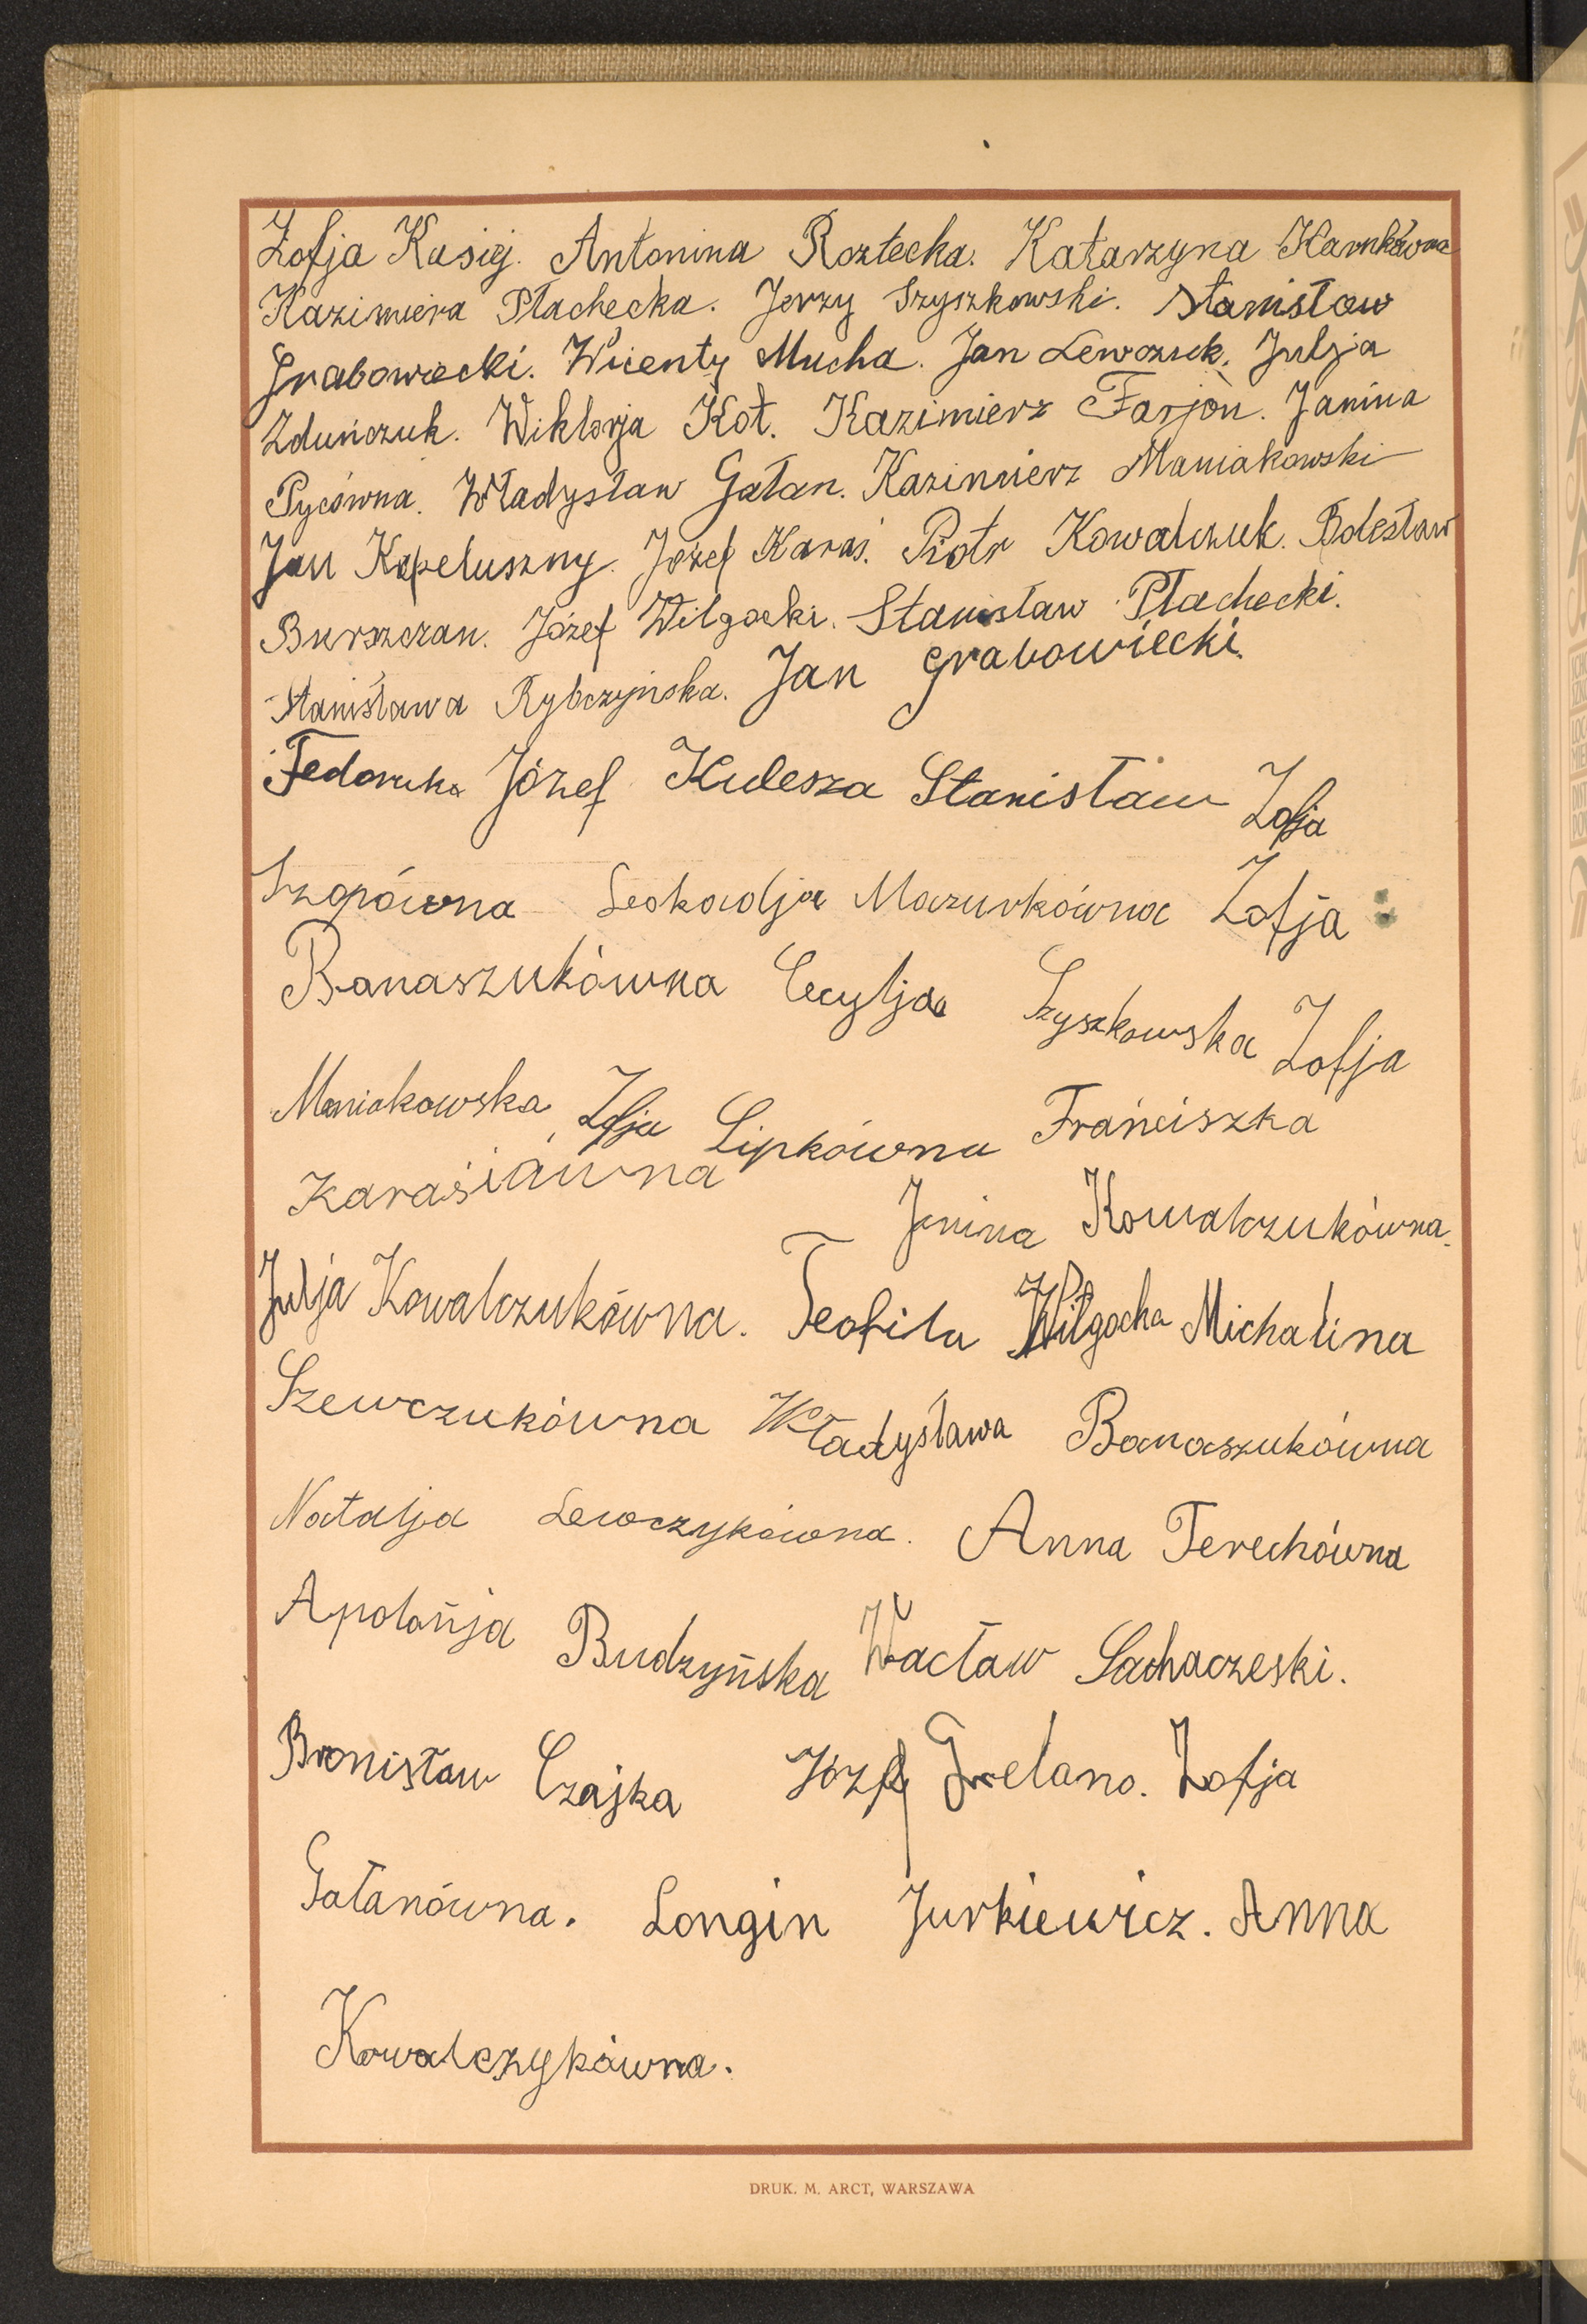 Zofja Kasiej. Antonina Roztecka. Katarzyna Karnkówna
Kazimiera Płachecka. Jerzy Szyszkowski. Stanisław
Grabowiecki. Wicenty Mucha. Jan Lewczuk. Julja
Zduńczuk. Wiktorja Kot. Kazimierz Farjon. Janina
Pycówna. Władysław Gałan. Kazimierz Maniakowski
Jan Kapeluszny. Józef Karaś. Piotr Kowalczuk. Bolesław
Burszczan. Józef Wilgocki. Stanisław Płachecki.
Stanisława Rybczyńska. Jan Grabowiecki.
Fedoruk Józef Kulesza Stanisław Zofja
Szopówna Leokadja Mazurkówna Zofja
Banaszukówna Cecylja Szyszkowska Zofja
Maniakowska, Zofja Lipkówna Franciszka
Karasiówna Janina Kowalczukówna.
Julja Kowalczukówna. Teofila Wilgocka Michalina
Szewczukówna Władysława Banaszukówna
Natalja Lewczykówna. Anna Terechówna
Apolonja Budzyńska Wacław Sachaczeski.
Bronisław Czajka Józef Grelano. Zofja
Gałanówna. Longin Jurkiewicz. Anna
Kowalczykówna.
DRUK. M. ARCT, WARSZAWA